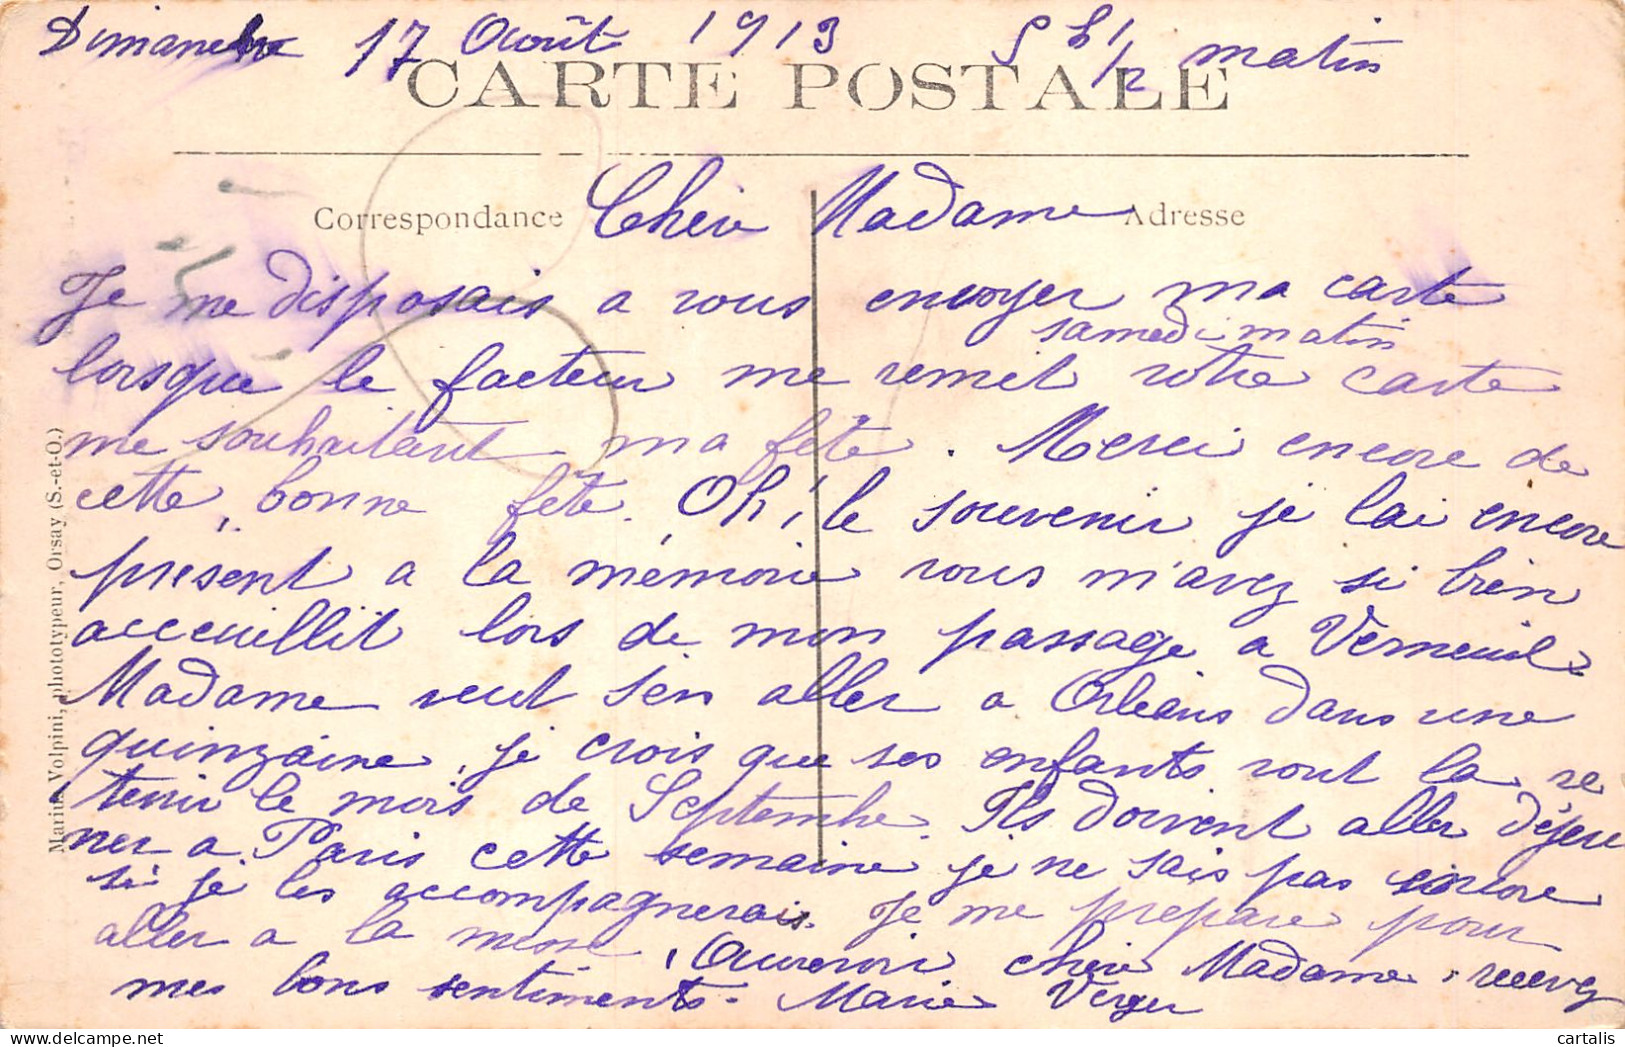 Dimanche 17 Août 1913 5 h 1/2 matin
CARTE POSTALE
Correspondance
Adresse
Chère Madame
Je me disposais a vous envoyer ma carte
samedi matin
lorsque le facteur me remit votre carte
me souhaitant ma fête. Merci encore de
cette bonne fête. Oh! le souvenir je l'ai encore
présent a la mémoire vous m'avez si bien
acceuillit lors de mon passage a Verneuil
Madame veut s'en aller a Orléans dans une
quinzaine, je crois que ses enfants vont la re
tenir le mois de Septembre. Ils doivent aller déjeu
ner a Paris cette semaine je ne sais pas encore
si je les accompagnerais. Je me prepare pour
aller a la messe. Aurevoir chère Madame, recevez
mes bons sentiments. Marie Verger
Marius Volpini, phototypeur, Orsay (S.-et-O.)
cartalis